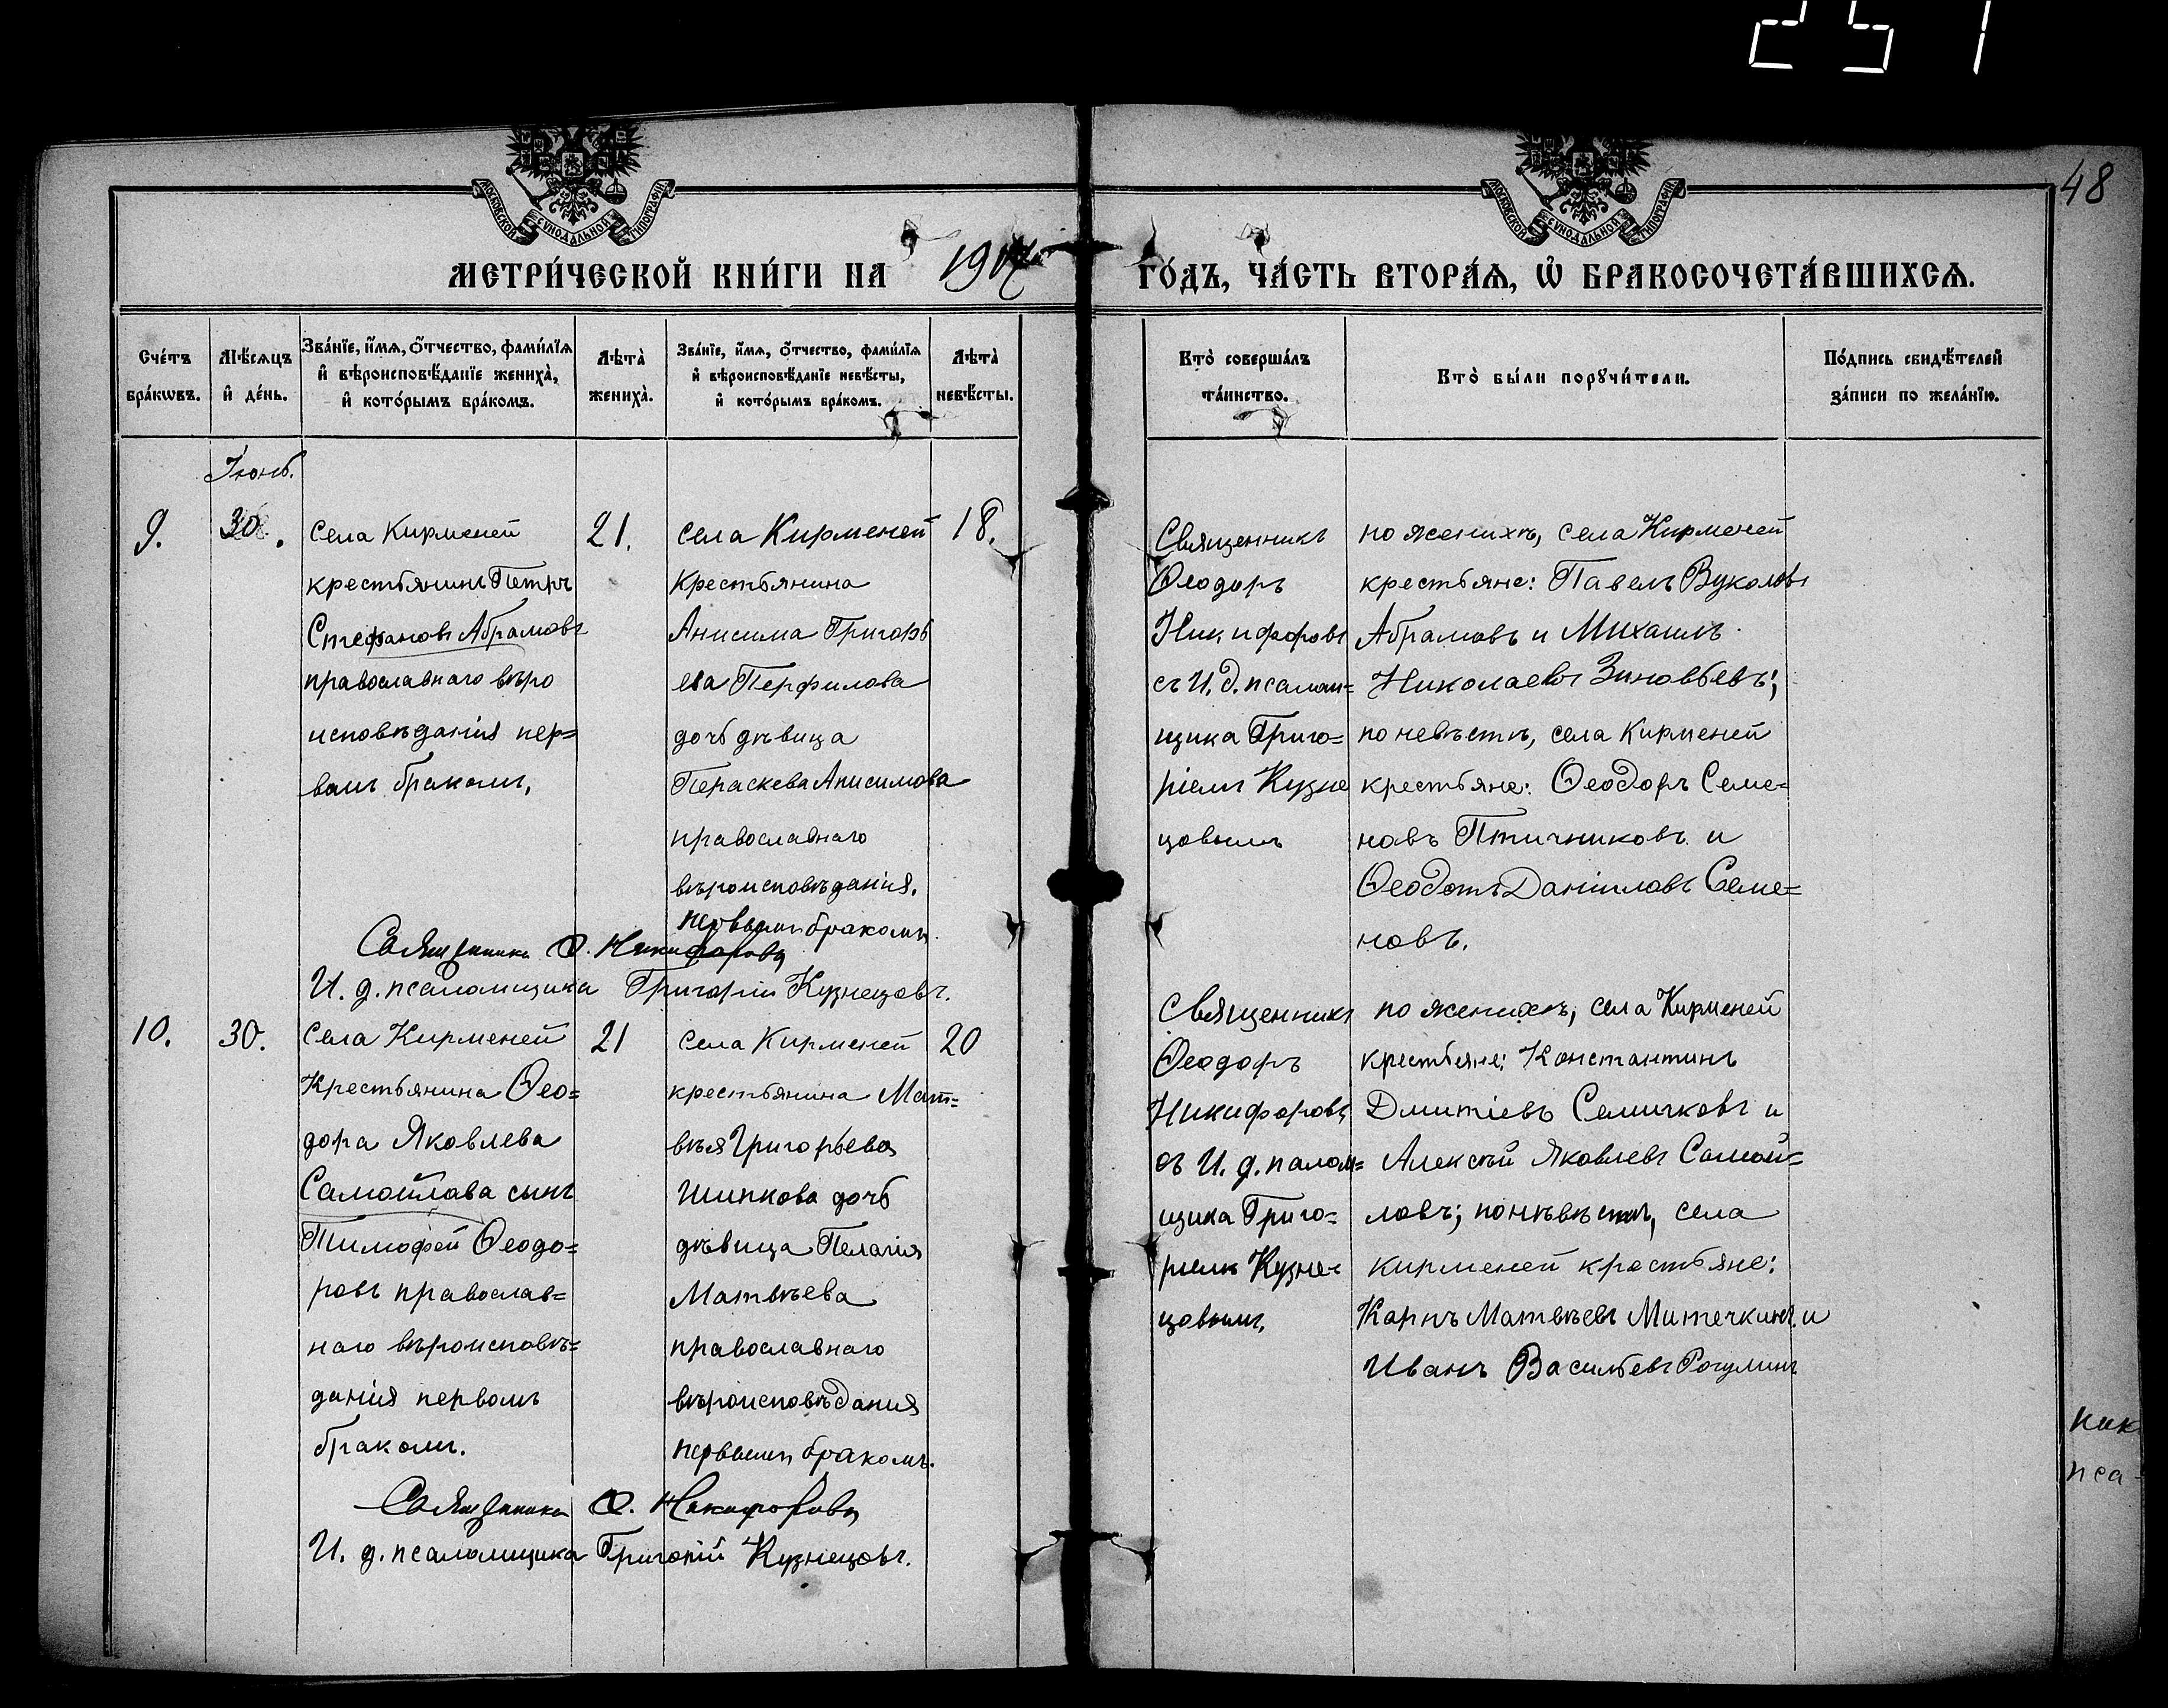 251
48
МОСКОВСКОЙ СѴНОДАЛЬНОЙ ТИПОГРАФІИ
МОСКОВСКОЙ СѴНОДАЛЬНОЙ ТИПОГРАФІИ
МЕТРИ́ЧЕСКОЙ КНИ́ГИ НА
ГО́ДЪ, ЧА́СТЬ ВТОРА́Ѧ, Ѡ҆ БРАКОСОЧЕТА́ВШИХСѦ.
Сче́тъ бра́кѡвъ.
Мѣ́сѧцъ и҆ де́нь.
Зва́нїе, и҆́мѧ, ѻ҆́тчество, фамѝлїѧ и҆ вѣроисповѣ́данїе жениха̀, и҆ кото́рымъ бра́комъ.
Лѣта̀ жениха̀.
Зва́нїе, и҆́мѧ, ѻ҆́тчество, фамѝлїѧ и҆ вѣроисповѣ́данїе невѣ́сты, и҆ кото́рымъ бра́комъ.
Лѣта̀ невѣ́сты.
Кто̀ соверша́лъ та́инство.
Кто̀ бы́ли порꙋчи́тели.
По́дпись свидѣ́телей за́писи по жела́нїю.
Іюнь.
9.
30.
села Кирменей
крестьянинъ Петръ
Стефановъ Абрамовъ
православнаго вѣро
исповѣданія пер=
вымъ бракомъ,
21.
села Кирменей
крестьянина
Анисима Григорь
ева Перфилова
дочь дѣвица
Пераскева Анисимова
православнаго
вѣроисповѣданія.
первымъ бракомъ
18.
Священникъ
Ѳеодоръ
Никифоровъ
съ И. д. псалом=
щика Григо=
ріемъ Кузне
цовымъ
по женихѣ, села Кирменей
крестьяне: Павелъ Вуколовъ
Абрамовъ и Михаилъ
Николаевъ Зиновьевъ;
по невѣстѣ, села Кирменей
крестьяне: Ѳеодоръ Семе=
новъ Птичниковъ и
Ѳеодотъ Даніиловъ Семе=
новъ.
Священникъ Ѳ. Никифоровъ
И. д. псаломщика Григорій Кузнецовъ.
10.
30.
Села Кирменей
Крестьянина Ѳео=
дора Яковлева
Самойлова сынъ
Тимофей Ѳеодо=
ровъ православ=
наго вѣроисповѣ=
данія первымъ
бракомъ.
21
Села Кирменей
крестьянина Мат=
вѣя Григорьева
Шипкова дочь
дѣвица Пелагія
Матвѣева
православнаго
вѣроисповѣданія
первымъ бракомъ.
20
Священникъ
Ѳеодоръ
Никифоровъ
съ И. д. палом=
щика Григо=
ріемъ Кузне
цовымъ,
по женихѣ, села Кирменей
крестьяне: Константинъ
Дмитіевъ Семичковъ и
Алексѣй Яковлевъ Самой=
ловъ; по нѣвѣстѣ, села
кирменей крестьяне:
Карпъ Матвѣевъ Митечкинъ и
Иванъ Васильевъ Рогулинъ
Священникъ Ѳ. Никифоровъ
И. д. псаломщика Григорій Кузнецовъ.
пса-